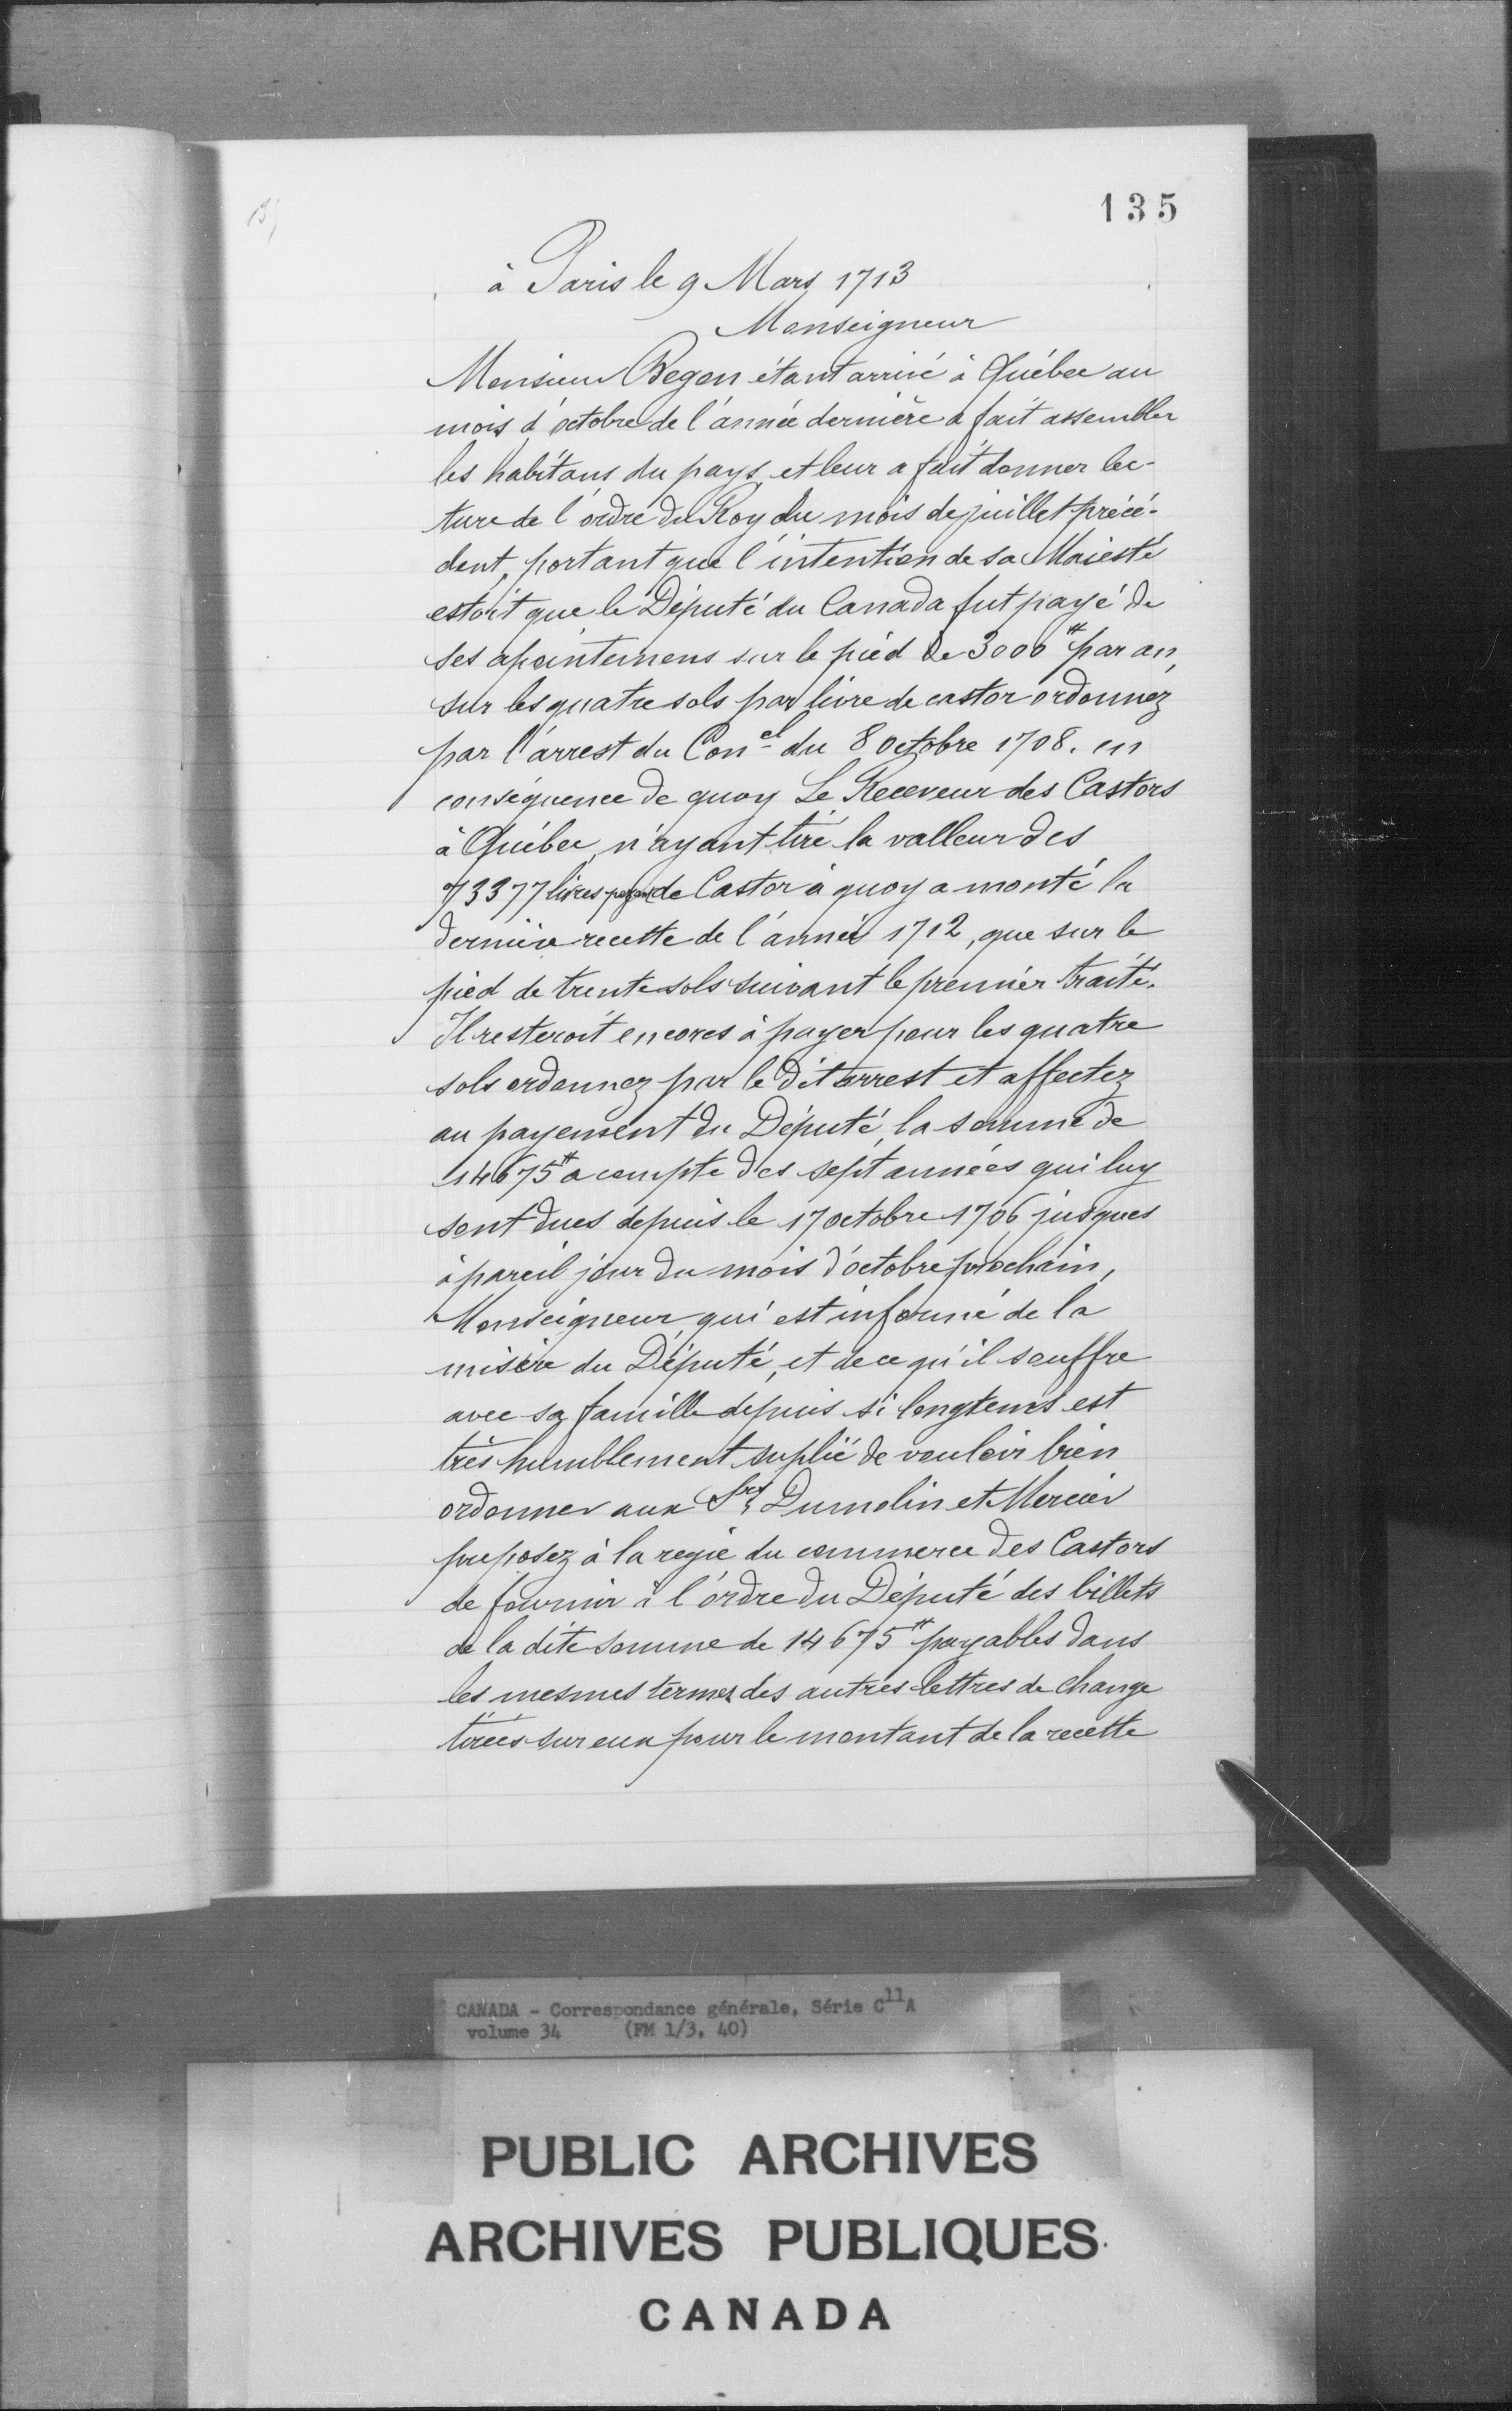 135
à Paris le 9 Mars 1713
Monseigneur
Monsieur Begon étant arrivé à Québec au
mois d'octobre de l'année dernière a fait assembler
les habitans du pays, et leur a fait donner lec-
ture de l'ordre du Roy du mois de juillet précé-
dent, portant que l'intention de sa Maiesté
estoit que le Député du Canada fut payé de
ses apointemens sur le pied de 3000# par an,
sur les quatre sols par livre de castor ordonnez
par l'arrest du Con^el du 8 octobre 1708. en
conséquence de quoy Le Receveur des Castors
à Québec, n'ayant tiré la valleur des
73377 livres de Castor à quoy a monté la
dernière recette de l'année 1712, que sur le
pied de trente sols suivant le premier traité.
Il resteroit encores à payer pour les quatre
sols ordonnez par le dit arrest et affectez
au payement du Député, la somme de
14675# a compte des sept années qui luy
sont dues depuis le 17 octobre 1706 jusques
à pareil jour du mois d'octobre prochain,
Monseigneur, qui est informé de la
misère du Député, et de ce qu'il souffre
avec sa famille depuis si longtems est
très humblement suplié de vouloir bien
ordonner aux Srs Dumolin et Mercier
preposez à la regie du commerce des Castors
de fournir à l'ordre du Député des billets
de la dite somme de 14675# payables dans
les mesmes termes des autres lettres de change
tirées sur eux pour le montant de la recette
CANADA - Correspondance générale, Série C11A
volume 34 (FM 1/3, 40)
PUBLIC ARCHIVES
ARCHIVES PUBLIQUES
CANADA